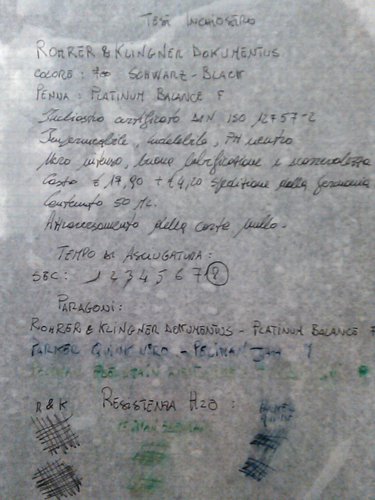 TEST INCHIOSTRO
ROHRER & KLINGNER DOKUMENTUS
COLORE: 700 SCHWARZ - BLACK
PENNA: PLATINUM BALANCE F
Inchiostro certificato DIN ISO 12757-2
Impermeabile, indelebile, PH neutro
Nero intenso, buona lubrificazione e scorrevolezza
Costo € 17,90 + € 4,20 spedizione dalla Germania
Contenuto 50 ML.
Attraversamento della carta nullo.
TEMPO DI ASCIUGATURA:
SEC: 1 2 3 4 5 6 7 8
PARAGONI:
ROHRER & KLINGNER DOKUMENTUS - PLATINUM BALANCE F
PARKER QUINK NERO - PELIKAN
R & K RESISTENZA H2O: PARKER QUINK